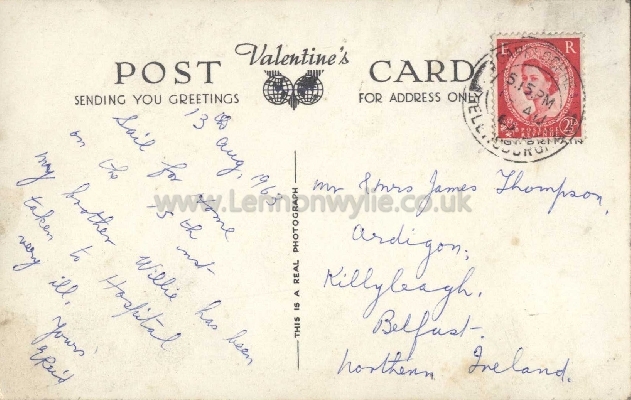 Valentine's
POST CARD
SENDING YOU GREETINGS
FOR ADDRESS ONLY
E R
5.15 PM
THIS IS A REAL PHOTOGRAPH
www.Lennonwylie.co.uk
13th Aug, 1963
Sail for home
on the 15th inst
my brother Willie has been
taken to Hospital
very ill,
yours,
EReid
Mr & Mrs James Thompson,
Ardigon,
Killyleagh,
Belfast.
Northern Ireland.